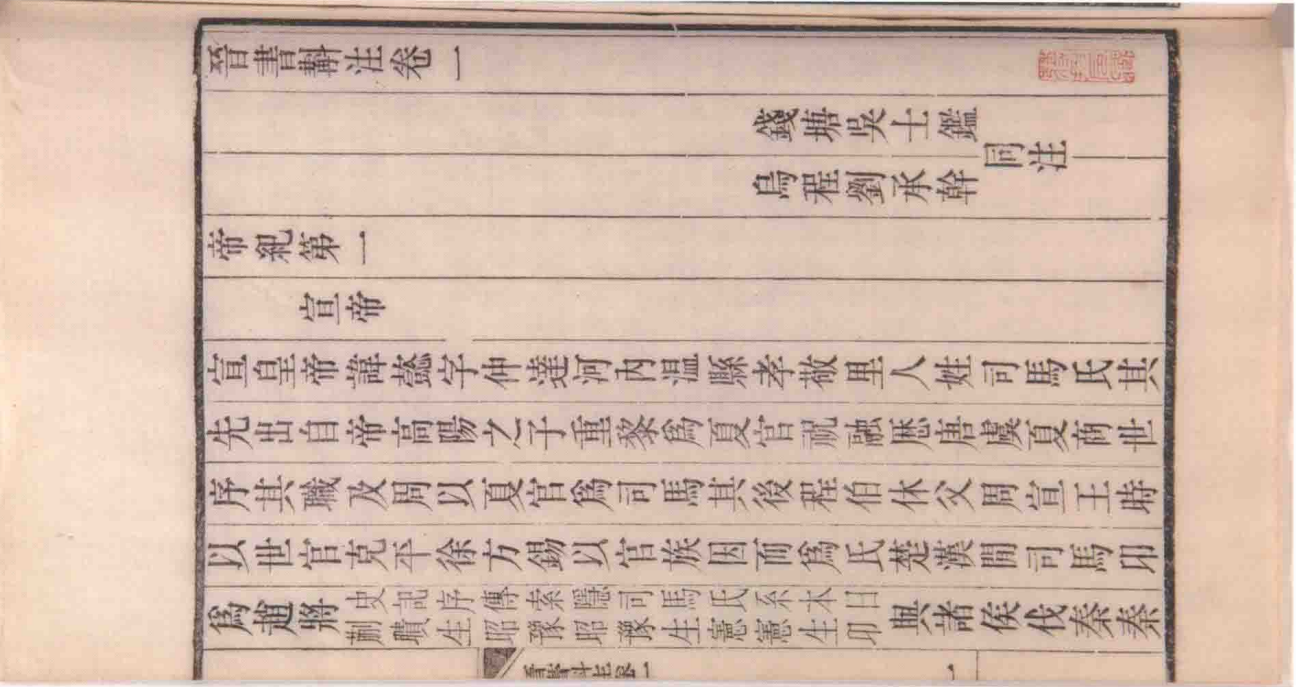 晉書斠注卷一
錢塘吳士鑑
烏程劉承幹
同注
帝紀第一
宣帝
宣皇帝諱懿字仲達河內溫縣孝敬里人姓司馬氏其
先出自帝高陽之子重黎爲夏官祝融歷唐虞夏商世
序其職及周以夏官爲司馬其後程伯休父周宣王時
以世官克平徐方錫以官族因而爲氏楚漢閒司馬卬
爲趙將史記序傳索隱司馬氏系本曰蒯聵生昭豫昭豫生憲憲生卬與諸侯伐秦秦
晉書斠注卷一
一